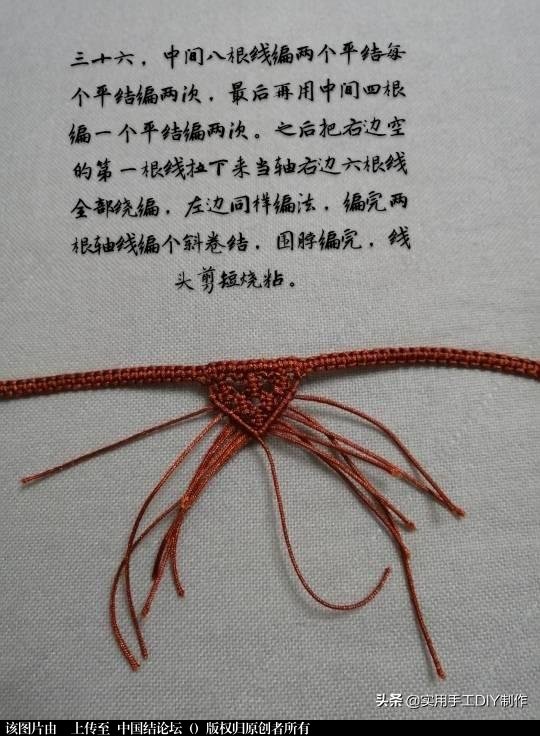 三十六，中间八根线编两个平结每
个平结编两次，最后再用中间四根
编一个平结编两次。之后把右边空
的第一根线拉下来当轴右边六根线
全部绕编，左边同样编法，编完两
根轴线编个斜卷结，围脖编完，线
头剪短烧粘。
头条 @实用手工DIY制作
该图片由 上传至 中国结论坛 () 版权归原创者所有